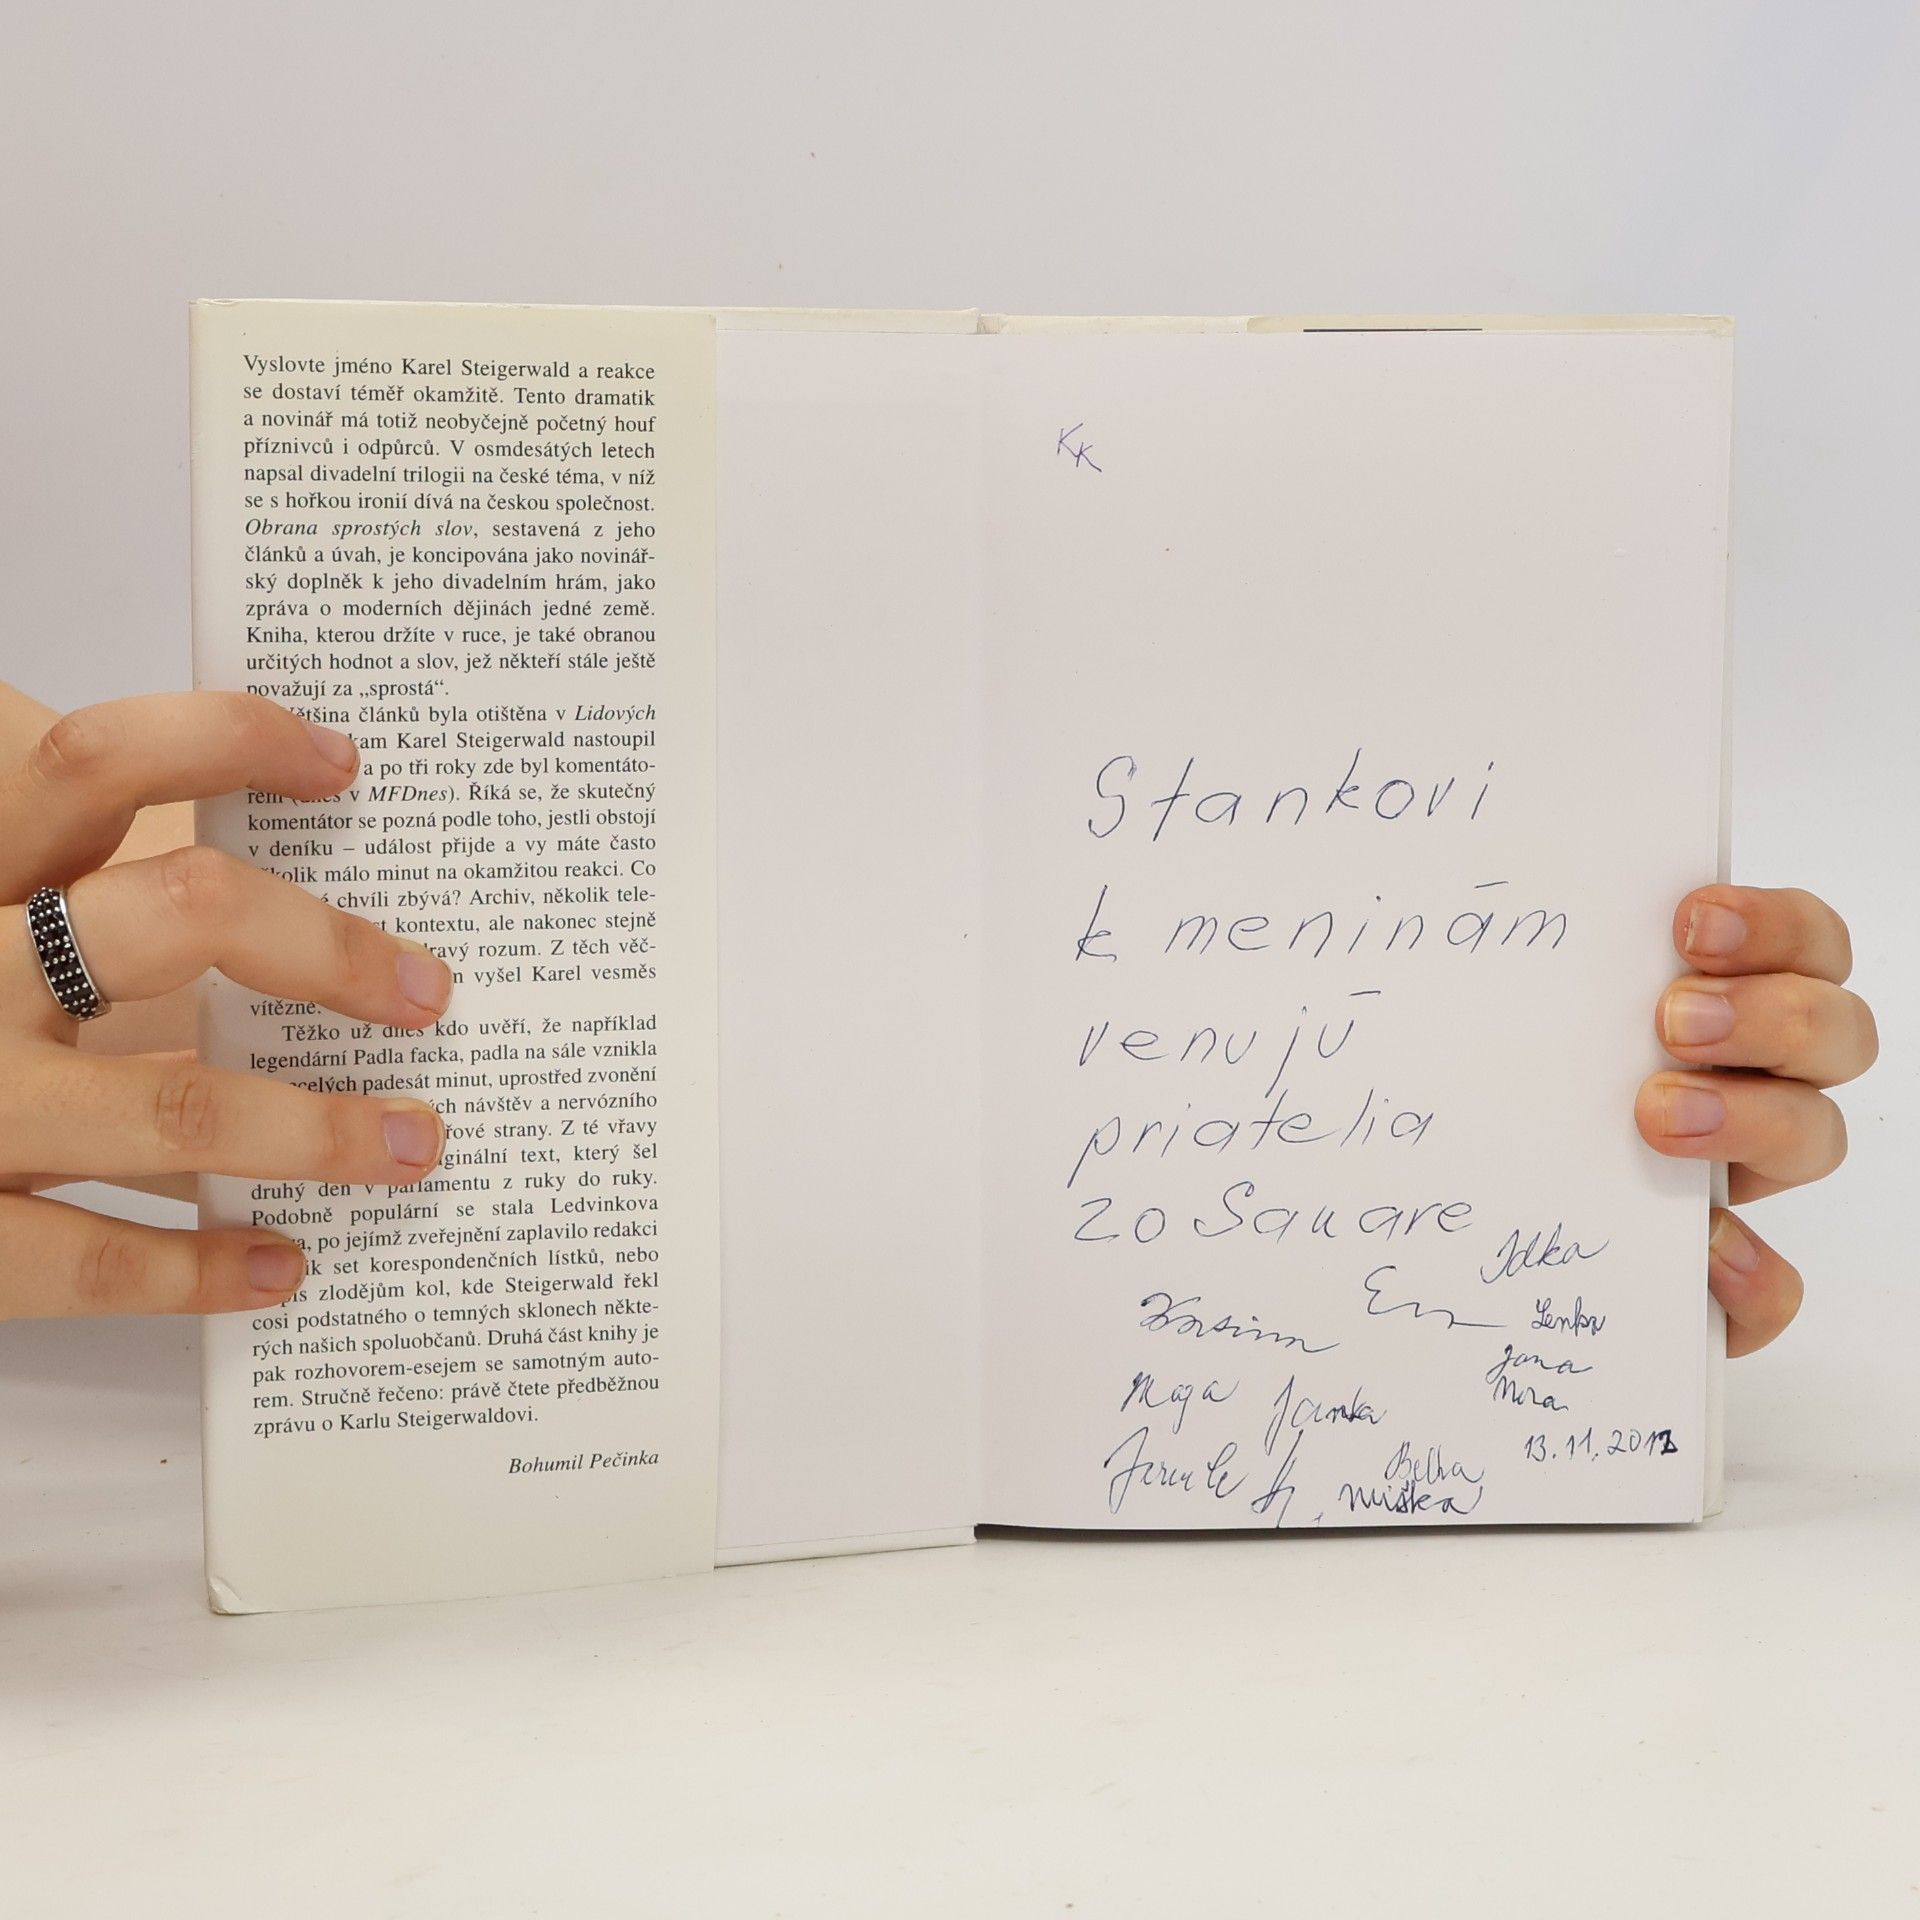 Vyslovte jméno Karel Steigerwald a reakce
se dostaví téměř okamžitě. Tento dramatik
a novinář má totiž neobyčejně početný houf
příznivců i odpůrců. V osmdesátých letech
napsal divadelní trilogii na české téma, v níž
se s hořkou ironií dívá na českou společnost.
Obrana sprostých slov, sestavená z jeho
článků a úvah, je koncipována jako novinář-
ský doplněk k jeho divadelním hrám, jako
zpráva o moderních dějinách jedné země.
Kniha, kterou držíte v ruce, je také obranou
určitých hodnot a slov, jež někteří stále ještě
považují za „sprostá“.
článků byla otištěna v Lidových
kam Karel Steigerwald nastoupil
a po tři roky zde byl komentáto-
rem v MFDnes). Říká se, že skutečný
komentátor se pozná podle toho, jestli obstojí
v deníku – událost přijde a vy máte často
málo minut na okamžitou reakci. Co
chvíli zbývá? Archiv, několik tele-
kontextu, ale nakonec stejně
rozum. Z těch věč-
vyšel Karel vesměs
vítězně.
Těžko už dnes kdo uvěří, že například
legendární Padla facka, padla na sále vznikla
padesát minut, uprostřed zvonění
návštěv a nervózního
strany. Z té vřavy
text, který šel
druhý den v parlamentu z ruky do ruky.
Podobně populární se stala Ledvinkova
po jejímž zveřejnění zaplavilo redakci
set korespondenčních lístků, nebo
zlodějům kol, kde Steigerwald řekl
cosi podstatného o temných sklonech někte-
rých našich spoluobčanů. Druhá část knihy je
pak rozhovorem-esejem se samotným auto-
rem. Stručně řečeno: právě čtete předběžnou
zprávu o Karlu Steigerwaldovi.
Bohumil Pečinka
KK
Stankovi
k meninám
venujú
priatelia
zo Square
Idka
Lenka
Jana
Maga Janka
Mira
13.11.2012
Miška